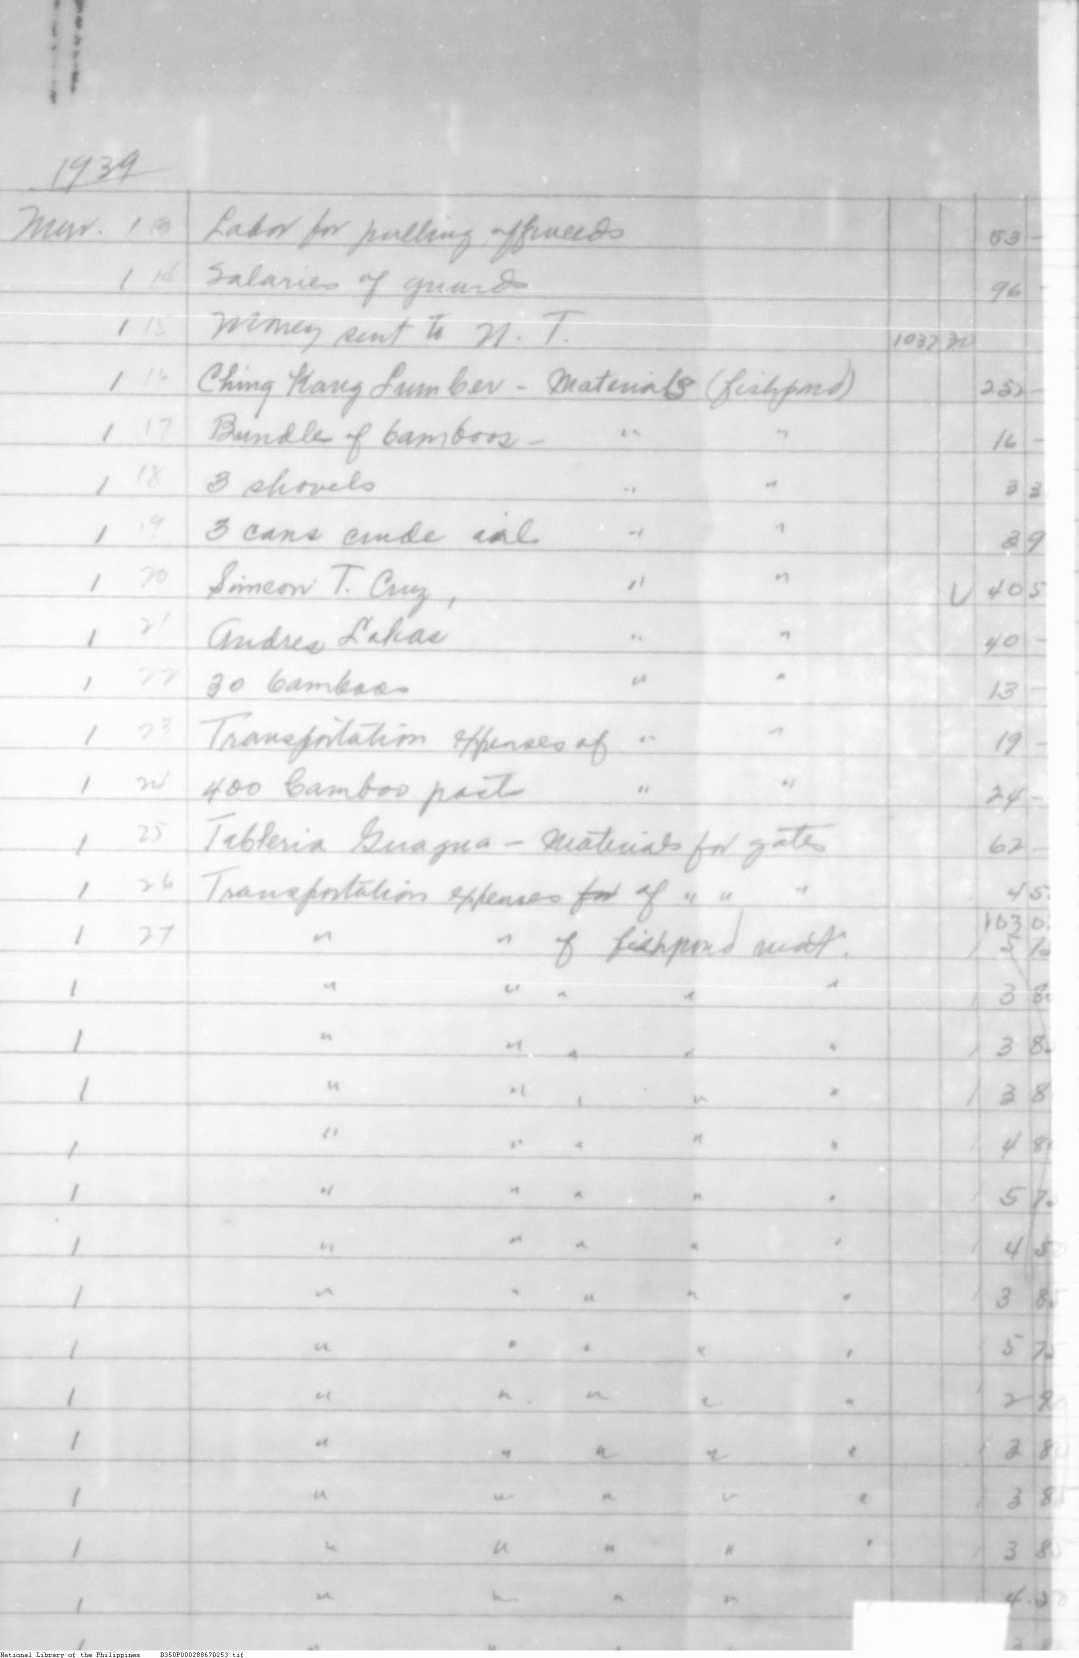 1939
Mar. 1 Labor for pulling off weeds 53 -
1 Salaries of guards 96 -
1 15 Money sent to N. T. 1032 30
1 Ching Kang Lumber - Materials (fishpond) 252 -
1 17 Bundle of bamboos - " " 16 -
1 18 3 shovels " " 3 3
1 19 3 cans crude oil " " 3 9
1 20 Simeon T. Cruz, " " 40 5
1 21 Andres Lakas " " 40 -
1 22 30 bamboos " " 13 -
1 23 Transportation expenses of " " 19 -
1 24 400 bamboo posts " " 24 -
1 25 Tableria Guagua - Materials for gates 62 -
1 26 Transportation expenses for of " " " 4 5
1030
1 27 " " of fishpond mat. 5
1 " " " " " 3 8
1 " " " " " 3 8
1 " " " " " 3 8
1 " " " " " 4 8
1 " " " " " 5 7
1 " " " " " 4 5
1 " " " " " 3 8
1 " " " " " 5 7
1 " " " " " 2 9
1 " " " " " 3 80
1 " " " " " 3 85
1 " " " " " 3 8
1 " " " " 4.20
National Library of the Philippines D350P000288670253.tif